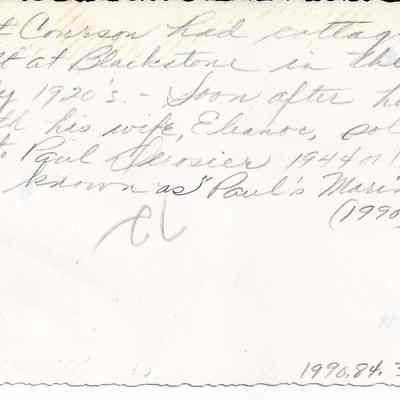 t Courson had cottag
lt at Blackstone in the
ly 1920's. - Soon after h
th his wife, Eleanor, sol
to Paul Derosier 1944 or
known as "Paul's Mari
(1990
1990.84.3